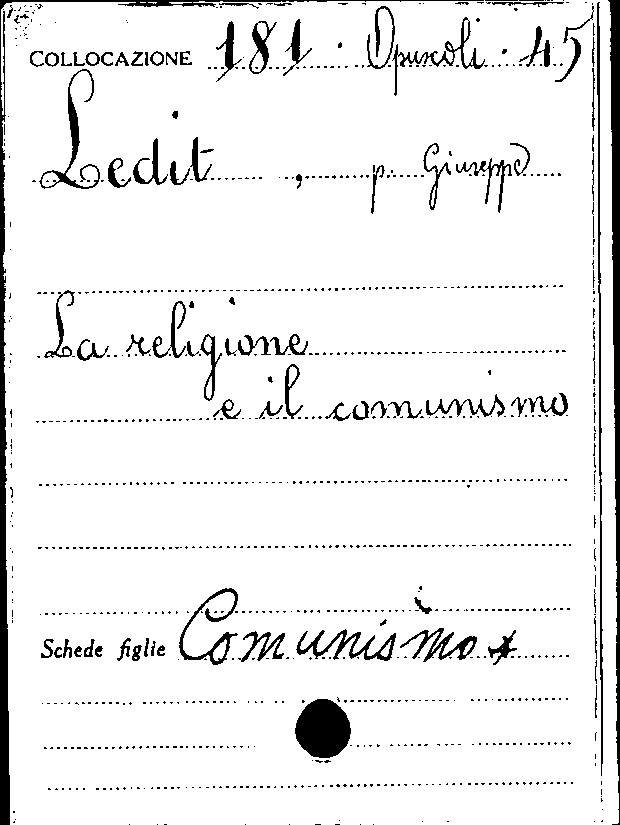 COLLOCAZIONE 181 · Opuscoli · 45
Ledit , p. Giuseppe
La religione
e il comunismo
Schede figlie Comunismo *